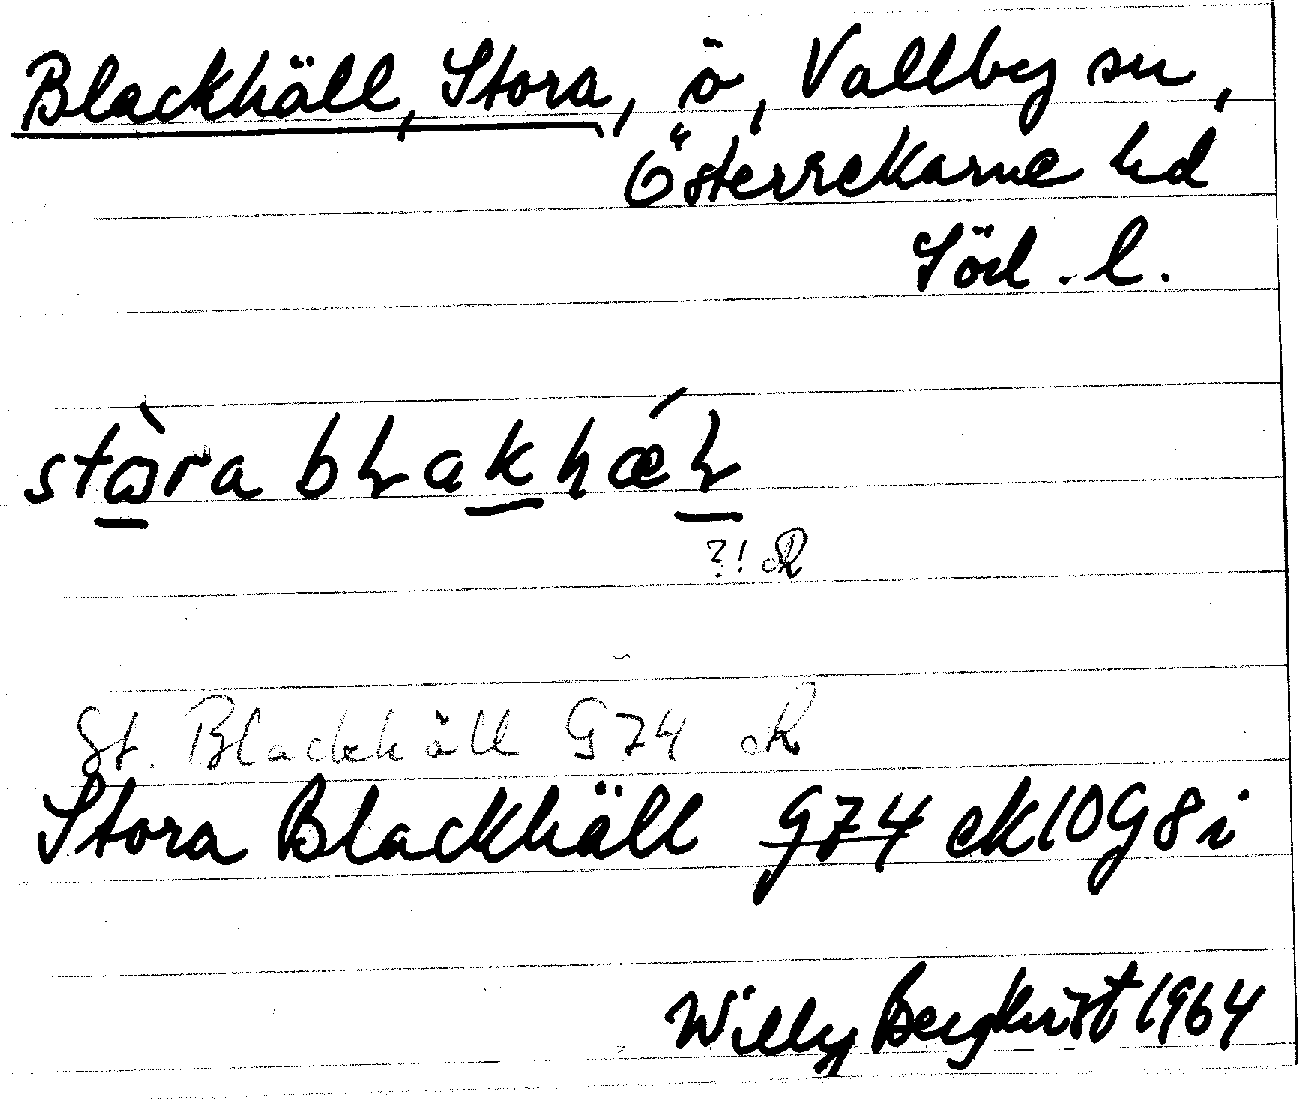 Blackhäll, Stora, ö, Vallby sn,
Österrekarne hd
Söd. l.
stòra bɫakhǽɫ
?! R
St. Blackhäll G74 R
Stora Blackhäll g74 ek10G8i
Willy Bergkvist 1964